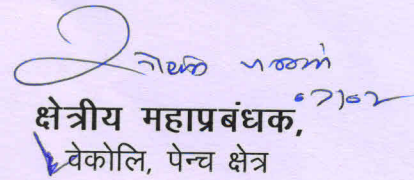 07/02
क्षेत्रीय महाप्रबंधक,
वेकोलि, पेन्च क्षेत्र